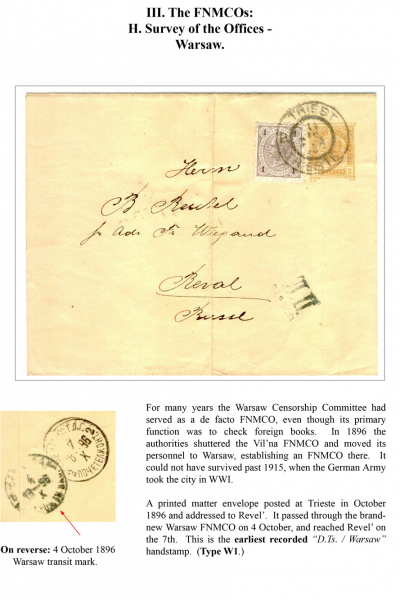 III. The FNMCOs:
H. Survey of the Offices -
Warsaw.
TRIEST
Herrn
B. Reutel
pr. Adr. Fr. Wiegand
Reval
Russl
For many years the Warsaw Censorship Committee had
served as a de facto FNMCO, even though its primary
function was to check foreign books. In 1896 the
authorities shuttered the Vil’na FNMCO and moved its
personnel to Warsaw, establishing an FNMCO there. It
could not have survived past 1915, when the German Army
took the city in WWI.
A printed matter envelope posted at Trieste in October
1896 and addressed to Revel’. It passed through the brand-
new Warsaw FNMCO on 4 October, and reached Revel’ on
the 7th. This is the earliest recorded “D.Ts. / Warsaw”
handstamp. (Type W1.)
On reverse: 4 October 1896
Warsaw transit mark.